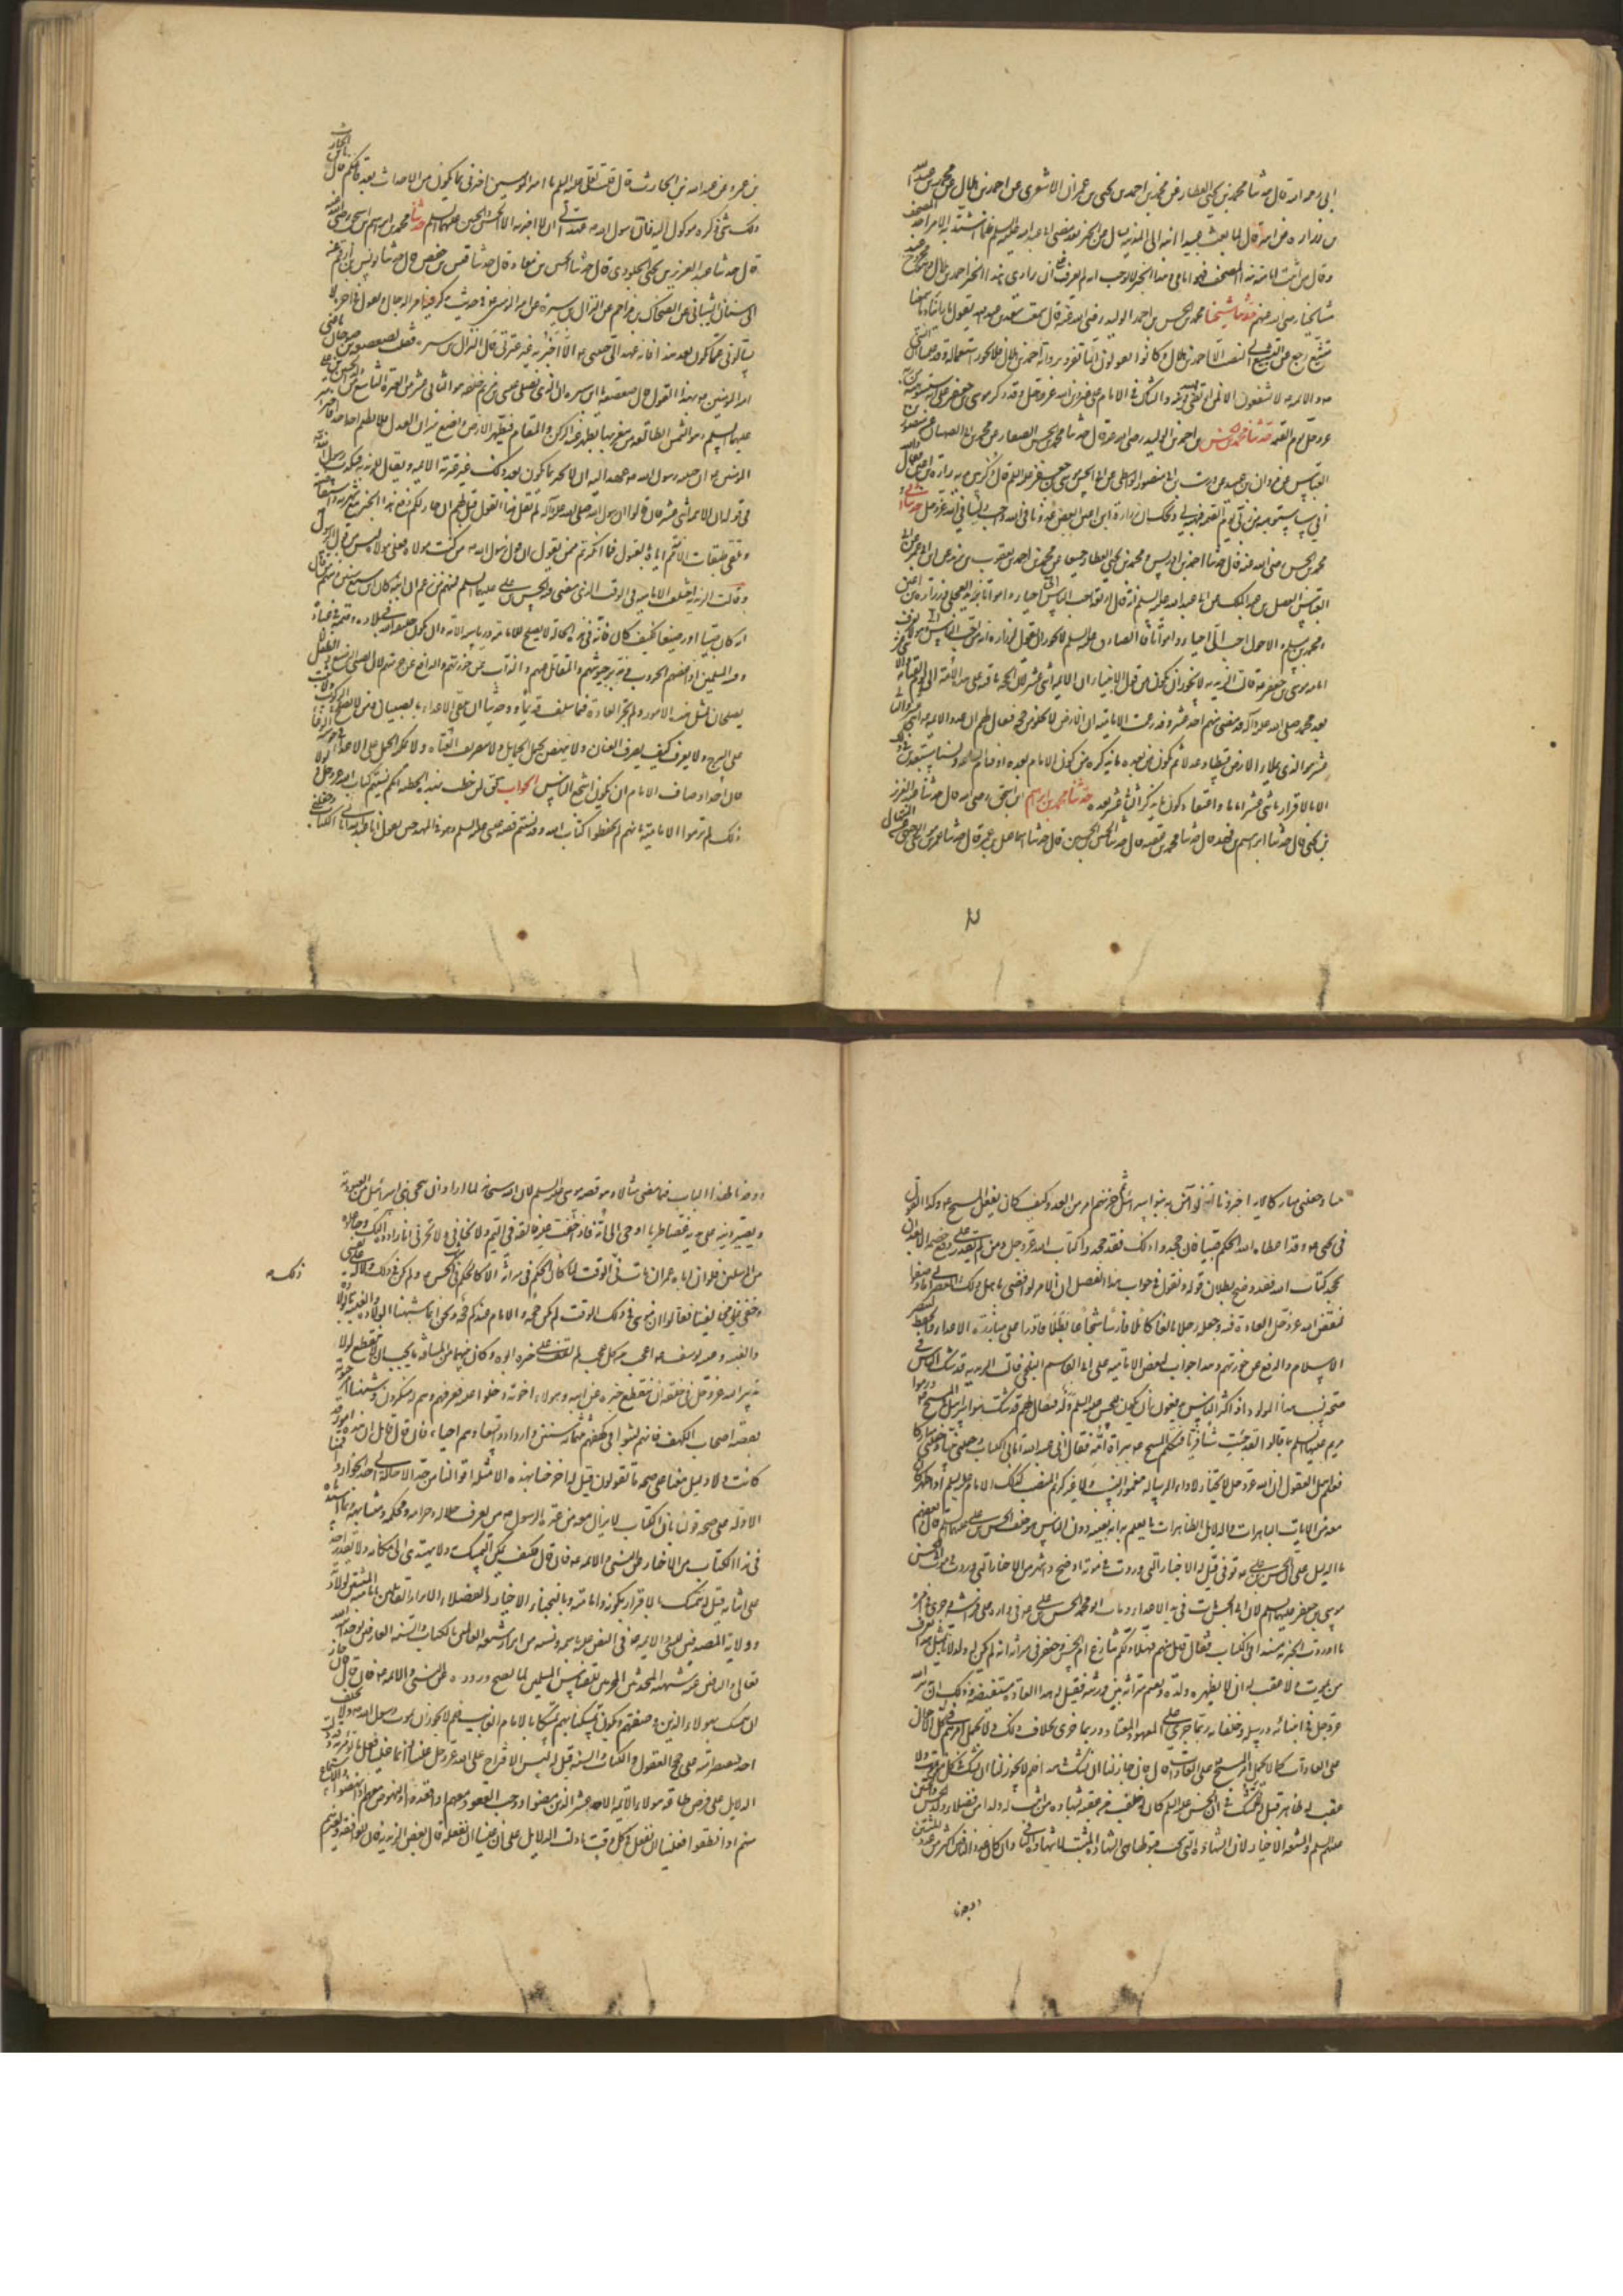 ابي رحمه الله قال حدثنا محمد بن يحيى العطار عن محمد بن احمد بن يحيى بن عمران الاشعري عن احمد بن هلال عن محمد بن عبد الله
بن زرارة عن ابيه قال لما بعث زرارة عبيدا ابنه الى المدينة يسال عن الخبر بعد مضي ابي عبد الله عليه السلم فلما اشتد به الامر اخذ المصحف
وقال من اثبت امامته هذا المصحف فهو امامي وهذا الخبر لا يوجب انه لم يعرف ان راوي هذا الخبر احمد بن هلال وهو مجروح عند
مشايخنا رضي الله عنهم حدثنا شيخنا محمد بن الحسن بن احمد الوليد رضي الله عنه قال سمعت سعد بن عبد الله يقول ما راينا ولا سمعنا
بمتشيع رجع عن التشيع الى النصب الا احمد بن هلال وكانوا يقولون ان ما تفرد بروايته احمد بن هلال فلا يجوز استعماله وقد علمنا ان النبي
والائمه لا يشفعون الا لمن ارتضى الله دينه والشاك في الامام على غير دين الله عز وجل وقد ذكر موسى بن جعفر انه سيستوهبه من ربه
عز وجل يوم القيمة حدثنا محمد بن الحسن بن احمد بن الوليد رضي الله عنه قال حدثنا محمد بن الحسن الصفار عن محمد بن ابي الصهبان عن منصور بن
العباس عن مروك بن عبيد عن درست بن ابي منصور الواسطي عن ابي الحسن موسى بن جعفر عليه السلم قال ذكر بين يديه زرارة بن اعين فقال والله
اني ساستوهبه من ربي يوم القيمة فيهبه لي ويحك ان زرارة بن اعين ابغض عدونا في الله واحب ولينا في الله عز وجل حدثنا ابي و
محمد بن الحسن رضي الله عنه قال حدثنا احمد بن ادريس ومحمد بن يحيى العطار جميعا عن محمد بن احمد بن يعقوب بن يزيد عن ابن ابي عمير عن ابي
العباس الفضل بن عبد الملك عن ابي عبد الله عليه السلم انه قال اربعة احب الناس الي احياء وامواتا بريد العجلي وزرارة بن اعين
ومحمد بن مسلم والاحول احب الي احياء وامواتا فالصادق عليه السلم لا يجوز ان يقول لزرارة انه من احب الناس اليه وهو لا يعرف
امامة موسى بن جعفر قالت الزيدية لا يجوز ان يكون من قول الانبياء ان الائمة اثنى عشر لان الحجة باقية على هذه الامة الى يوم القيامة والاثنا عشر
بعد محمد صلى الله عليه واله قد مضى منهم احد عشر وقد زعمت الامامية ان الارض لا تخلو من حجة فيقال لهم ان عدد الائمة اثنى
عشر والثاني عشر هو الذي يملا الارض قسطا وعدلا ثم يكون بعده ما يذكره من كون الامام بعده او قيام القيمة ولسنا مستعبدين في ذلك
الا بالاقرار باثنى عشر اماما واعتقاد كون ما يذكره الثاني عشر بعده حدثنا محمد بن ابراهيم بن اسحق رضي الله عنه قال حدثنا عبد العزيز
بن يحيى قال حدثنا ابراهيم بن فهد قال حدثنا محمد بن عقبة قال حدثنا الحسن بن الحسين قال حدثنا اسماعيل بن عمر قال حدثنا عمر بن موسى الوجيهي عن المنهال
بن عمرو عن عبد الله بن الحارث قال قلت لعلي عليه السلم يا امير المؤمنين اخبرني بما يكون من الاحداث بعد قائمكم قال يا ابن الحارث
ذلك شيء ذكره موكول اليه فان رسول الله عهد الي ان لا اخبر به الا الحسن والحسين عليهما السلم حدثنا محمد بن ابراهيم بن اسحق رضي الله عنه
قال حدثنا عبد العزيز بن يحيى الجلودي قال حدثنا الحسن بن معاذ قال حدثنا قيس بن حفص قال حدثنا يونس بن ارقم عن
ابي سنان الشيباني عن الضحاك بن مزاحم عن النزال بن سبرة عن امير المؤمنين في حديث يذكر فيه امر الدجال ويقول في اخره لا
تسالوني عما يكون بعد هذا فانه عهد الي حبيبي ان لا اخبر به غير عترتي قال النزال بن سبرة فقلت لصعصعة بن صوحان ما عنى
امير المؤمنين بهذا القول قال صعصعة يا ابن سبرة ان الذي يصلي عيسى بن مريم خلفه هو الثاني عشر من العترة التاسع من ولد الحسين بن علي
عليهما السلم وهو الشمس الطالعة من مغربها يظهر عند الركن والمقام فيطهر الارض ويضع ميزان العدل فلا يظلم احد احدا فاخبر امير
المؤمنين ان حبيبه رسول الله عهد اليه ان لا يخبر بما يكون بعد ذلك غير عترته الائمه ويقال للزيدية افيكذب رسول الله
في قوله ان الائمة اثنى عشر فان قالوا ان رسول الله صلى الله عليه واله لم يقل هذا القول قيل لهم ان جاز لكم دفع هذا الخبر مع شهرته واستفاضته
وتلقي طبقات الامامية اياه بالقبول فما انكرتم ممن يقول ان قول رسول الله من كنت مولاه فعلي مولاه ليس من قول الرسول
وقالت الزيدية اختلف الامامية في الوقت الذي مضى فيه الحسن بن علي عليهما السلم فمنهم من زعم ان ابنه كان ابن سبع سنين ومنهم من قال
انه كان صبيا او رضيعا وكيف كان فانه في هذه الحالة لا يصلح للامامة ورياسة الامة وان يكون خليفة الله في بلاده وقيمه في عباده
وفئة المسلمين اذا عضتهم الحروب ومدبر جيوشهم والمقاتل عنهم والذاب عن حوزتهم والدافع عن حريمهم لان الصبي الرضيع والطفل لا
يصلحان لمثل هذه الامور ولم تجر العادة فيما سلف قديما وحديثا ان تلقى الاعداء بالصبيان ومن لا يحسن الركوب ولا يثبت
على السرج ولا يعرف كيف يصرف العنان ولا ينهض بحمل الحمايل ولا بتصريف القناة ولا يمكنه الحمل على الاعداء في حومة الوغا
فان احد اوصاف الامام ان يكون اشجع الناس الجواب يقال لمن خطب بهذه الخطبة انكم نسيتم كتاب الله عز وجل ولولا
ذلك لم ترموا الامامية بانهم لا يحفظون كتاب الله وقد نسيتم قصة عيسى عليه السلم وهو في المهد حين يقول اني عبد الله اتاني الكتاب وجعلني
نبيا وجعلني مباركا الاية اخبرونا لو امن به بنو اسرائيل ثم حزبهم امر من العدو كيف كان يفعل المسيح وكذلك القول
في يحيى وقد اعطاه الله الحكم صبيا فان جحدوا ذلك فقد جحدوا كتاب الله عز وجل ومن لم يقدر على دفع خصمه الا بعد ان
يجحد كتاب الله فقد وضح بطلان قوله ونقول في جواب هذا الفصل ان الامر لو افضى باهل هذا العصر الى ما وصفوا
لنقض الله عز وجل العادة فيه وجعله رجلا بالغا كاملا فارسا شجاعا بطلا قادرا على مبارزة الاعداء والحفظ لبيضة
الاسلام والدفع عن حوزتهم وهذا جواب لبعض الامامية على ابي القاسم البلخي قالت الزيدية قد شك الناس في
صحة نسب هذا المولود اذ اكثر الناس يدفعون ان يكون للحسن عليه السلم ولد فيقال لهم قد شك بنو اسرائيل في المسيح ورموا
مريم عليهما السلم بما قالوا لقد جئت شيئا فريا فتكلم المسيح ببراءة امه فقال اني عبد الله اتاني الكتاب وجعلني نبيا وجعلني مباركا
فعلم اهل العقول ان الله عز وجل لا يختار لاداء الرسالة مغمورا في النسب ولا غير كريم المنصب كذلك الامام عليه السلم اذا ظهر كان
معه من الايات الباهرات والدلايل الظاهرات ما يعلم به انه بعينه دون الناس هو خلف الحسن بن علي عليهما السلم قال بعضهم
ما الدليل على ان الحسن بن علي توفي قيل له الاخبار التي وردت في موته اوضح واشهر من الاخبار التي وردت في موت ابي الحسن
موسى بن جعفر عليهما السلم لان ابا الحسن مات في يد الاعداء ومات ابو محمد الحسن بن علي في داره على فراشه وجرى في امره
ما اوردت الخبر به مسندا في الكتاب فقال قايل منهم فهلا دلكم تنازع ام الحسن وجعفر في ميراثه انه لم يكن له ولد لانا بمثل هذا نعرف
من يموت ولا عقب له ان لا يظهر ولده ويقسم ميراثه بين ورثته فقيل له هذه العادة مستفيضة وذلك ان تدبير الله
عز وجل في انبيائه ورسله وخلفائه ربما جرى على المعهود المعتاد وربما جرى بخلاف ذلك فلا يحمل امرهم في كل الاحوال
على العادات كما لا يحمل امر المسيح على العادات قال فان جاز لنا ان نشك في هذا لم لا يجوز لنا ان نشك في كل من يموت ولا
عقب له ظاهر قيل له لا نشك في ان الحسن عليه السلم كان له خلف من عقبه بشهادة من اثبت له ولدا من فضلاء ولد الحسن والحسين
عليهم السلم والشيعة الاخيار لان الشهادة التي يجب قبولها هي شهادة المثبت لا شهادة النافي وان كان عدد النافين اكثر من عدد المثبتين
ووجدنا
ووجدنا لهذا الباب فيما مضى مثالا وهو قصة موسى عليه السلم لان الله سبحانه لما اراد ان ينجي بني اسرائيل من العبودية
ويصير دينه على يديه غضا طريا اوحى الى امه فاذا خفت عليه فالقيه في اليم ولا تخافي ولا تحزني انا رادوه اليك وجاعلوه
من المرسلين فلو ان اباه عمران مات في ذلك الوقت لما كان الحكم في ميراثه الا كالحكم في ميراث الحسن ولم يكن في ذلك دلالة على نفي
ذلك
وخفي على مخالفينا فقالوا ان موسى في ذلك الوقت لم يكن بحجة والامام عندكم حجة ونحن انما شبهنا الولادة والغيبة بالولادة
والغيبة وغيبة يوسف اعجب من كل عجب لم يقف على خبره ابوه وكان بينهما من المسافة ما يجب ان لا ينقطع لولا
تدبير الله عز وجل في خلقه ان ينقطع خبره عن ابيه وهؤلاء اخوته دخلوا عليه فعرفهم وهم له منكرون وشبهنا امر حيوته
بقصة اصحاب الكهف فانهم لبثوا في كهفهم ثلثمائة سنين وازدادوا تسعا وهم احياء فان قال قايل ان هذه امور قد
كانت ولا دليل معنا على صحة ما تقولون قيل له اخرجنا بهذه الامثلة اقوالنا من حد الاحالة الى حد الجواز و
الادلة على صحة قولنا ان الكتاب لا يزال معه من عترة الرسول من يعرف حلاله وحرامه ومحكمه ومتشابهه وبما اسندناه
في هذا الكتاب من الاخبار عن النبي والائمة فان قال فكيف التمسك ولا نهتدي الى مكانه ولا يقدر احد
على اتيانه قيل له نتمسك بالاقرار بكونه وبامامته وبالنجباء الاخيار والفضلاء الابرار القائلين بامامته المثبتين لولادته
وولايته المصدقين للنبي والائمة في النص عليه باسمه ونسبه من ابرار شيعته العالمين بالكتاب والسنة العارفين بوحدانية الله
تعالى والنافين عنه شبهة المحدثين المحرمين للقياس المسلمين لما يصح وروده عن النبي والائمة فان قال قايل فان جاز
ان نتمسك بهؤلاء الذين وصفتهم ويكون تمسكنا بهم تمسكا بالامام الغايب فلم لا يجوز ان يموت رسول الله ولا يخلف
احدا فيقتصر امته على حجج العقول والكتاب والسنة قيل له ليس الاقتراح على الله عز وجل علينا وانما علينا فعل ما نؤمر به وقد دلت
الدلايل على فرض طاعة هؤلاء الائمة الاحد عشر الذين مضوا ووجب القعود معهم اذا قعدوا والنهوض معهم اذا نهضوا والاستماع
منهم اذا نطقوا فعلينا ان نفعل في كل وقت ما دلت الدلايل على ان علينا ان نفعله قال بعض الزيدية فان للواقفة ولغيرهم